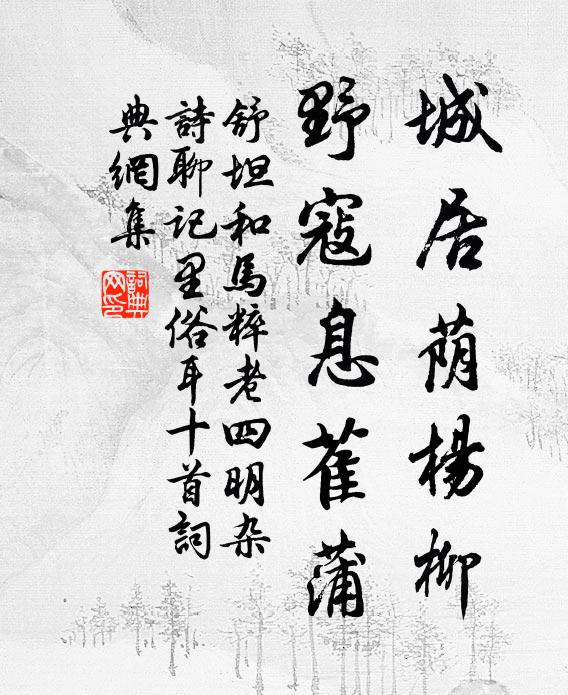 城居荫楊柳
野寇息萑蒲
舒坦和馬粹老四明杂
詩聊記里俗耳十首詞
典網集
詞典
网印